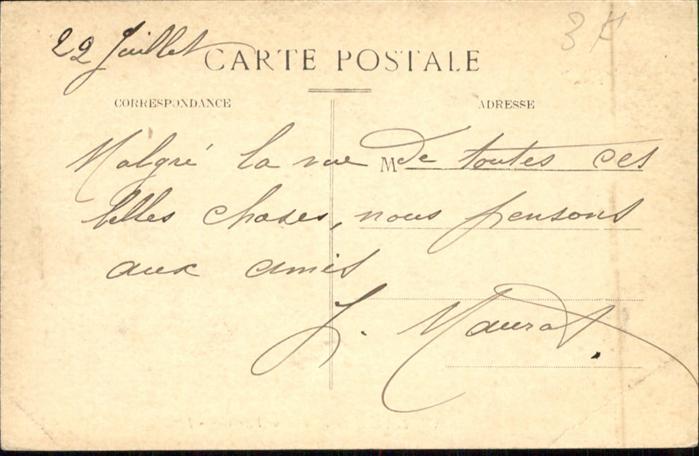 22 Juillet
CARTE POSTALE
CORRESPONDANCE
ADRESSE
M
Malgré la vue de toutes ces
belles choses, nous pensons
aux amis